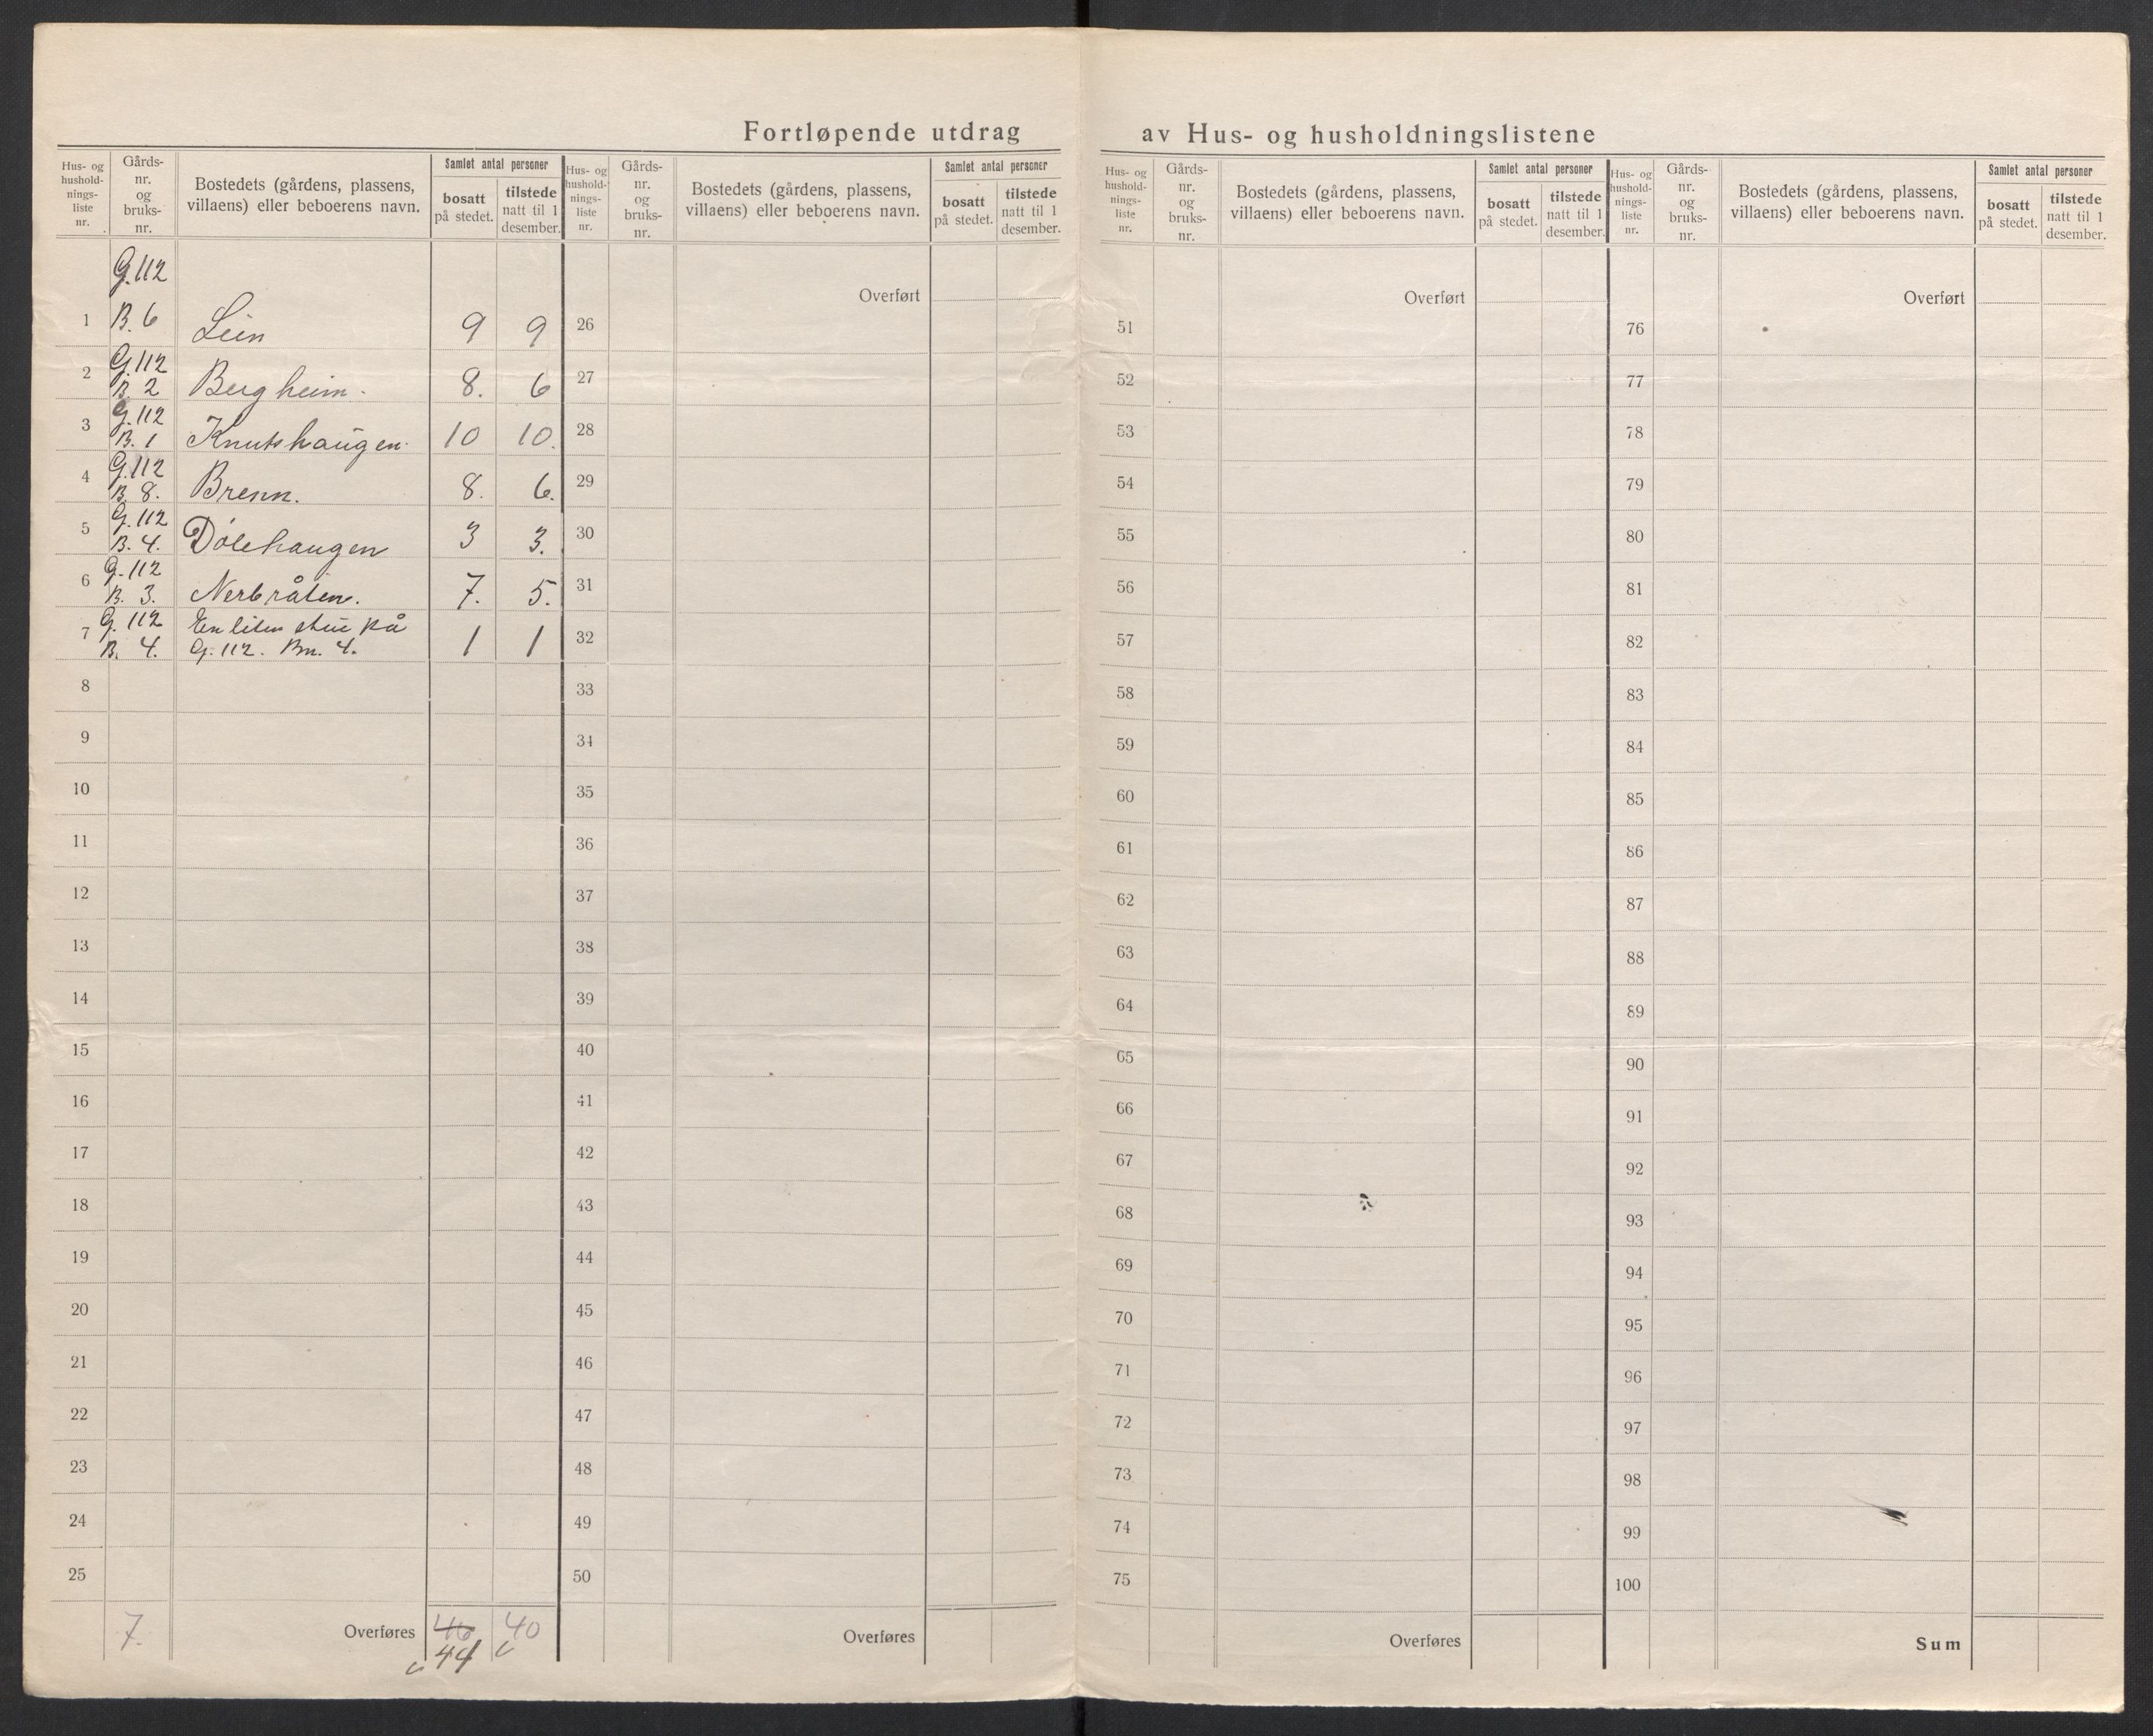 Fortløpende utdrag av Hus- og husholdningslistene
Hus- og hushold-nings-liste nr.
Gårds-nr. og bruks-nr.
Bostedets (gårdens, plassens, villaens) eller beboerens navn.
Samlet antal personer
bosatt på stedet.
tilstede natt til 1 desember.
Hus- og hushold-nings-liste nr.
Gårds-nr. og bruks-nr.
Bostedets (gårdens, plassens, villaens) eller beboerens navn.
Samlet antal personer
bosatt på stedet.
tilstede natt til 1 desember.
Hus- og hushold-nings-liste nr.
Gårds-nr. og bruks-nr.
Bostedets (gårdens, plassens, villaens) eller beboerens navn.
Samlet antal personer
bosatt på stedet.
tilstede natt til 1 desember.
Hus- og hushold-nings-liste nr.
Gårds-nr. og bruks-nr.
Bostedets (gårdens, plassens, villaens) eller beboerens navn.
Samlet antal personer
bosatt på stedet.
tilstede natt til 1 desember.
G. 112
1 B. 6 Lien 9 9
G. 112
2 B. 2 Bergheim. 8. 6
G. 112
3 B. 1 Knutshaugen. 10 10.
G. 112
4 B. 8. Brenn. 8. 6.
G. 112
5 B. 4. Dølehaugen 3 3.
G. 112
6 B. 3. Nerbråten. 7. 5.
7 G. 112 En liten stue på
B. 4. G. 112. Bn. 4. 1 1
8
9
10
11
12
13
14
15
16
17
18
19
20
21
22
23
24
25
7. Overføres 46 40
44
Overført
26
27
28
29
30
31
32
33
34
35
36
37
38
39
40
41
42
43
44
45
46
47
48
49
50
Overføres
Overført
51
52
53
54
55
56
57
58
59
60
61
62
63
64
65
66
67
68
69
70
71
72
73
74
75
Overføres
Overført
76
77
78
79
80
81
82
83
84
85
86
87
88
89
90
91
92
93
94
95
96
97
98
99
100
Sum